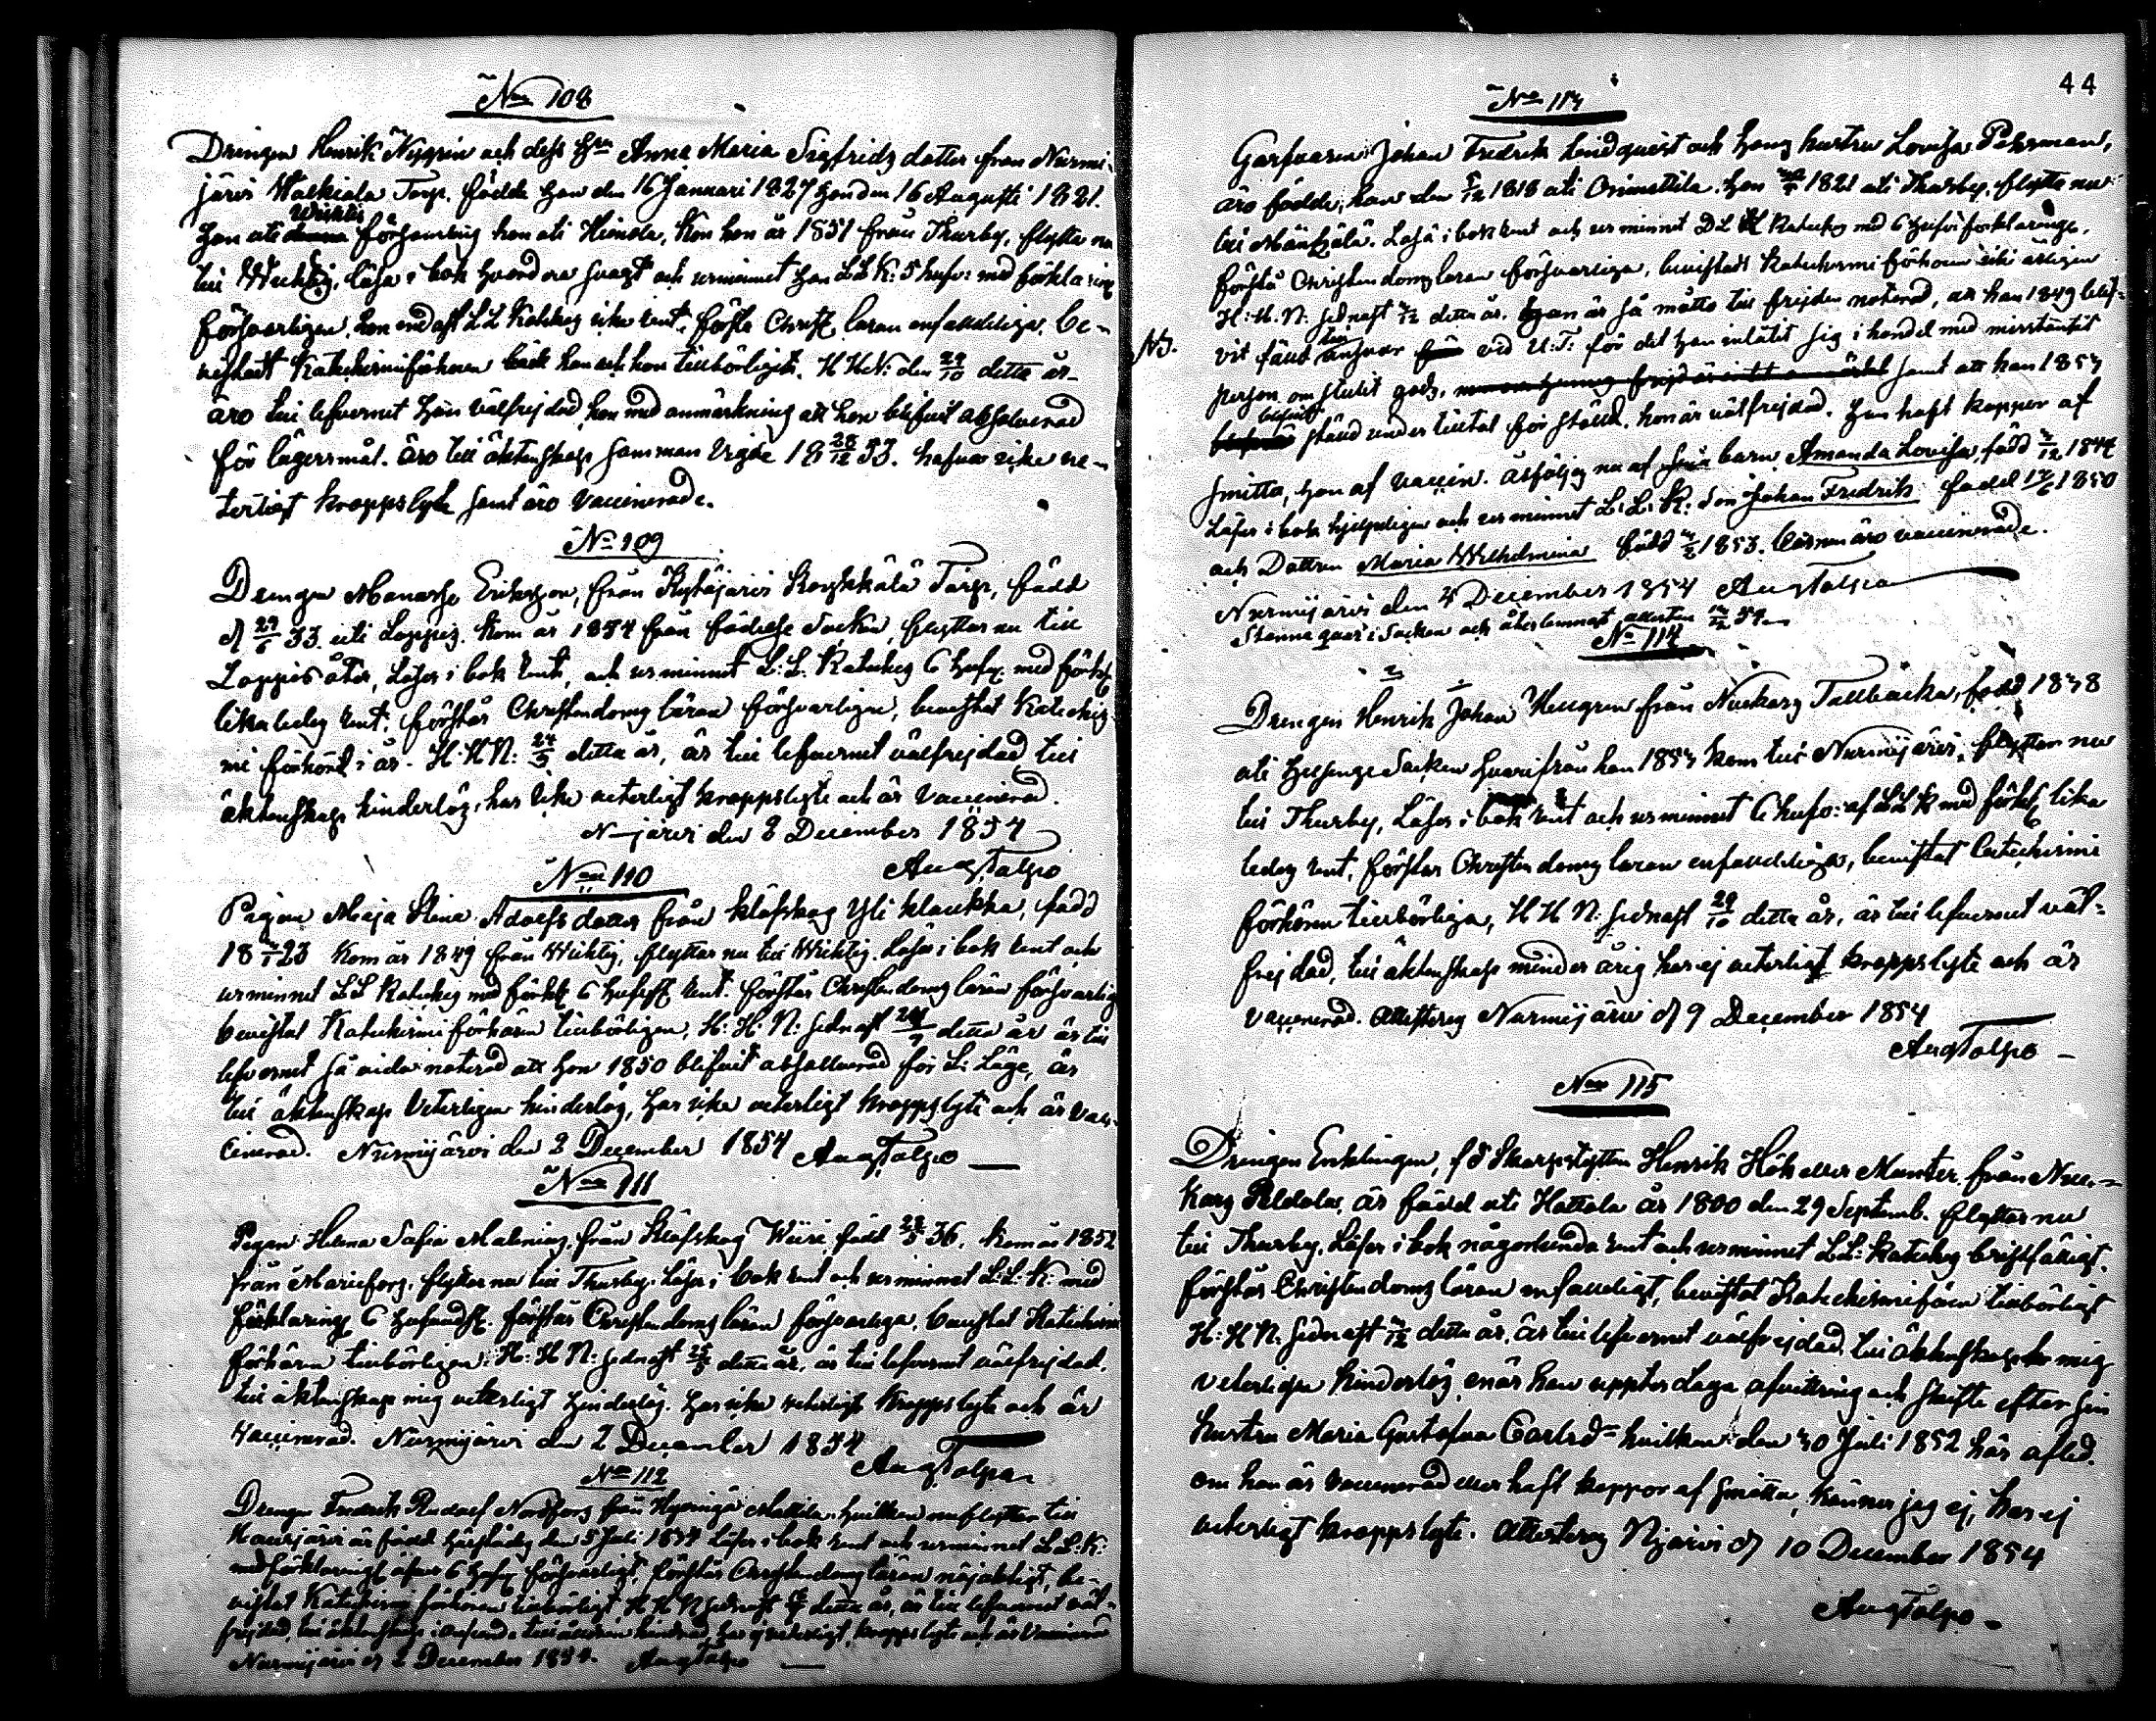 No 108
Drengen Henrik Nygren och dess Hru Anna Maria Sigfrids dotter från Nurmi-
järvi Walkiala Torp, födde han den 16 Januari 1827 hon den 16 Augusti 1821.
Wichtis
han uti församling hon uti Hiende, Kom hon år 1851 från Thusby, flytta nu
till Wichtis, läsa i bok hvardera svagt och ur minnet han L.L.K: 5 hufv: med förklaring
försvarligen, hon endast L L Kateches icke rent, förstå Christ. läran enfaldeligen, be-
vistat Katechismiförhören både han och hon tillbörligt. H H N: den 29/10 detta år
äro till lefvernet han välfrejdad, hon med anmärkning att hon blifvit absolverad
för lägersmål. äro till äktenskap samman vigde 18 28/12 53. hafva icke ve-
terligt kroppslyte samt äro vaccinerade.
No 109
Drengen Manasse Eriksson, från Kytäjärvi Koskkälä Torp, född
d 29/6 33 uti Loppis. Kom år 1854 från födelse Socken, flyttar nu till
Loppis åter, Läser i bok rent, och ur minnet L. L. Kateches 6 hufs. med förkl
likaledes rent, förstår Christendoms läran försvarligen, bevistat Kateches-
mi förhört i år. H: H N: 24/3 detta år, är till lefvernet välfrejdad till
äktenskap hinderlös, har icke veterligt kroppslyte och är vaccinerad.
N-järvi den 2 December 1854
Aug Talpo
No 110
Pigan Maja Stina Adolfs dotter från Klöfskog Yli Klaukka, född
18 23 Kom år 1849 från Wichtis, flyttar nu till Wichtis. Läser i bok rent och
ur minnet L L Kateches med förkl 6 Hufst rent. förstår Christendoms läran försvarlig
bevistat Katechismi förhören tillbörligen, H: H: N: sednast 24/9 detta år är till
lefvernet så vida noterad att hon 1850 blifvit absolverad för L: Läge, är
till äktenskap veterligen hinderlös, har icke veterligt kroppslyte och är vac-
cinerad. Nurmijärvi den 2 December 1854 Aug Talpo
No 111
Pigan Helena Sofia Malening, från Klöfskog Würi född 36. Kom år 1852
från Mariefors, flyttar nu till Thusby. Läser i bok rent och ur minnet L: L: K: med
förklaring 6 hufvudst. förstår Christendoms läran försvarliga, bevistat Katechismi
förhören tillbörligen. H: H N: sednast detta år, är till lefvernet välfrejdad,
till äktenskap mig veterligt hinderlös. har icke veterligt kroppslyte och är
vaccinerad. Nurmijärvi den 2 December 1854
Aug Talpo
No 112
Drengen Fredrik Rudolf Nordfors från Hyvinge Mattila hvilken nu flyttar till
Hausjärvi är född härstädes den 5 Juli 1834 läser i bok rent och ur minnet L L: K:
med förklaring äfver 6 hufs försvarligt, förstår Christendoms läran nöjaktigt, be-
vistat Katechismi förhören tillbörligt H H N sednast detta år, är till lefvernet väl-
frejdad, till äktenskap har ej veterligt kroppslyte och är vaccinerad
Nurmijärvi d 2 December 1854. Aug Talpo
44
No 113
Garfvaren Johan Fredrik Lindquist och hans hustru Lovisa Pehrman,
äro födde, han den 5/12 1818 uti Orimattila, hon 1821 uti Thusby, flytta nu
till Mäntzälä. Läsa i bok rent och ur minnet D L K Kateches med 6 hufv förklaringe,
förstå Christendoms läran försvarliga, bevistat Katechismi förhören icke årligen
H: H: N: sednast detta år. han är så måtto till frejden noterad, att han 1849 blif-
NB.
vit fäld till ansvar vid U: T: för det han inlåtit sig i handel med misstänkt
person om stulit gods, samt att han 1853
blifvit
stånd under tilltal för stöld, hon är välfrejdad. han haft koppor af
smitta, hon af vaccin. åtföljes nu af barn Amanda Lovisa, född 1844
Läser i bok hjelpeligen och ur minnet L: L: K: Son Johan Fredrik född 1850
och Dottren Maria Wilhelmina född 1853. barnen äro vaccinerade.
Nurmijärvi den 4 December 1854 Aug Talpo
Stanna qvar i Socken och återlemnat attesten 54
No 114
Drengen Henrik Johan Hellgren från Nuckars Tallbacka, född 1838
uti Helsinge Socken hvarifrån han 1853 kom till Nurmijärvi, flyttar nu
till Thusby, Läser i bok rent och ur minnet 6 hufv: af L L K med förkl lika
ledes rent, förstår Christendoms läran enfaldeligt, bevistat Catechismi
förhören tillbörliga, H H N: sednast 29/10 detta år, är till lefvernet väl-
frejdad, till äktenskap minderårig har ej veterligt kroppslyte och är
vaccinerad. Attesteras Nurmijärvi d 9 December 1854
Aug Talpo
No 115
Drengen Enklingen, f d Skarpskytten Henrik Hök eller Munter från Nuc-
kars Peldola, är född uti Hattola år 1800 den 29 Septemb. flyttar nu
till Thusby. Läser i bok någorlunda rent och ur minnet L L: Kateches bristfälligt.
förstår Christendoms läran enfaldeligt, bevistat Katechismiförhören tillbörligt
H: H N: sednast detta år, är till lefvernet välfrejdad, till äktenskap mig
veterligen hinderlös enär han upptar Laga afvittring och skifte efter sin
hustru Maria Gustafva Carlsd hvilken den 30 Juli 1852 här afled.
om han är vaccinerad eller haft koppor af smitta, känner jag ej, har ej
veterligt kroppslyte. Attesteras Njärvi d 10 December 1854
Aug Talpo